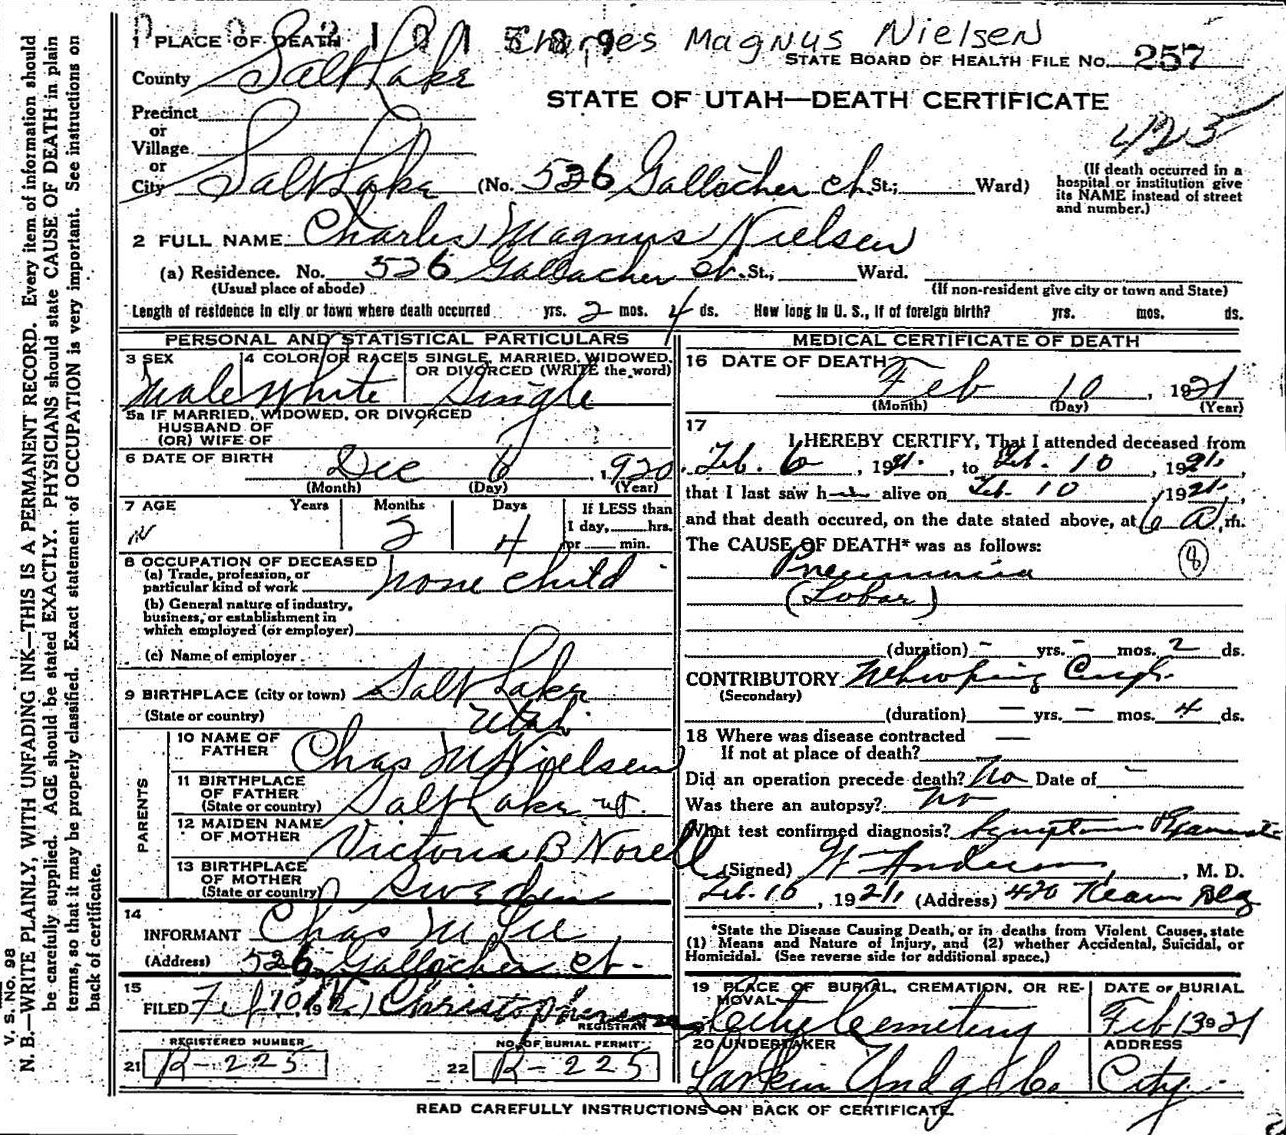 Charles Magnus Nielsen
1 PLACE OF DEATH
STATE BOARD OF HEALTH FILE No. 257
County Salt Lake
STATE OF UTAH—DEATH CERTIFICATE
423
Precinct
or
Village
or
City Salt Lake (No. 526 Gallacher ct St.; Ward)
(If death occurred in a hospital or institution give its NAME instead of street and number.)
2 FULL NAME Charles Magnus Nielsen
(a) Residence. No. 526 Gallacher ct. St., Ward.
(Usual place of abode) (If non-resident give city or town and State)
Length of residence in city or town where death occurred yrs. 2 mos. 4 ds. How long in U. S., if of foreign birth? yrs. mos. ds.
PERSONAL AND STATISTICAL PARTICULARS
3 SEX 4 COLOR OR RACE 5 SINGLE, MARRIED, WIDOWED, OR DIVORCED (WRITE the word)
Male White Single
5a IF MARRIED, WIDOWED, OR DIVORCED
HUSBAND OF
(OR) WIFE OF
6 DATE OF BIRTH Dec 6, 1920
(Month) (Day) (Year)
7 AGE Years Months Days If LESS than
1 day, hrs.
2 4 or min.
8 OCCUPATION OF DECEASED
(a) Trade, profession, or
particular kind of work none child
(b) General nature of industry,
business, or establishment in
which employed (or employer)
(c) Name of employer
9 BIRTHPLACE (city or town) Salt Lake
(State or country) Utah
PARENTS
10 NAME OF
FATHER Chas M Nielsen
11 BIRTHPLACE
OF FATHER
(State or country) Salt Lake ut.
12 MAIDEN NAME
OF MOTHER Victoria B Norell
13 BIRTHPLACE
OF MOTHER
(State or country) Sweden
14
INFORMANT Chas M
(Address) 526 Gallacher ct.
15
FILED Feb 10 19
REGISTRAR
REGISTERED NUMBER No. OF BURIAL PERMIT
21 R-225 22 R-225
MEDICAL CERTIFICATE OF DEATH
16 DATE OF DEATH Feb 10, 1921
(Month) (Day) (Year)
17
I HEREBY CERTIFY, That I attended deceased from
Feb. 6, 1921, to Feb. 10, 1921,
that I last saw h alive on Feb. 10, 1921,
and that death occured, on the date stated above, at 6 A m.
The CAUSE OF DEATH* was as follows:
Pneumonia 8
(Lobar)
(duration) - yrs. - mos. 2 ds.
CONTRIBUTORY Whooping Cough
(Secondary)
(duration) — yrs. – mos. 4 ds.
18 Where was disease contracted —
If not at place of death?
Did an operation precede death? No Date of -
Was there an autopsy? no
What test confirmed diagnosis?
(Signed) Anderson, M. D.
Feb. 10, 1921 (Address) 420 Kearns Bldg
*State the Disease Causing Death, or in deaths from Violent Causes, state
(1) Means and Nature of Injury, and (2) whether Accidental, Suicidal, or
Homicidal. (See reverse side for additional space.)
19 PLACE OF BURIAL, CREMATION, OR RE-
MOVAL DATE OF BURIAL
City Cemetery Feb 13 1921
20 UNDERTAKER ADDRESS
Larkin Undg Co City
READ CAREFULLY INSTRUCTIONS ON BACK OF CERTIFICATE.
V. S. No. 98
N. B.—WRITE PLAINLY, WITH UNFADING INK—THIS IS A PERMANENT RECORD. Every item of information should
be carefully supplied. AGE should be stated EXACTLY. PHYSICIANS should state CAUSE OF DEATH in plain
terms, so that it may be properly classified. Exact statement of OCCUPATION is very important. See instructions on
back of certificate.